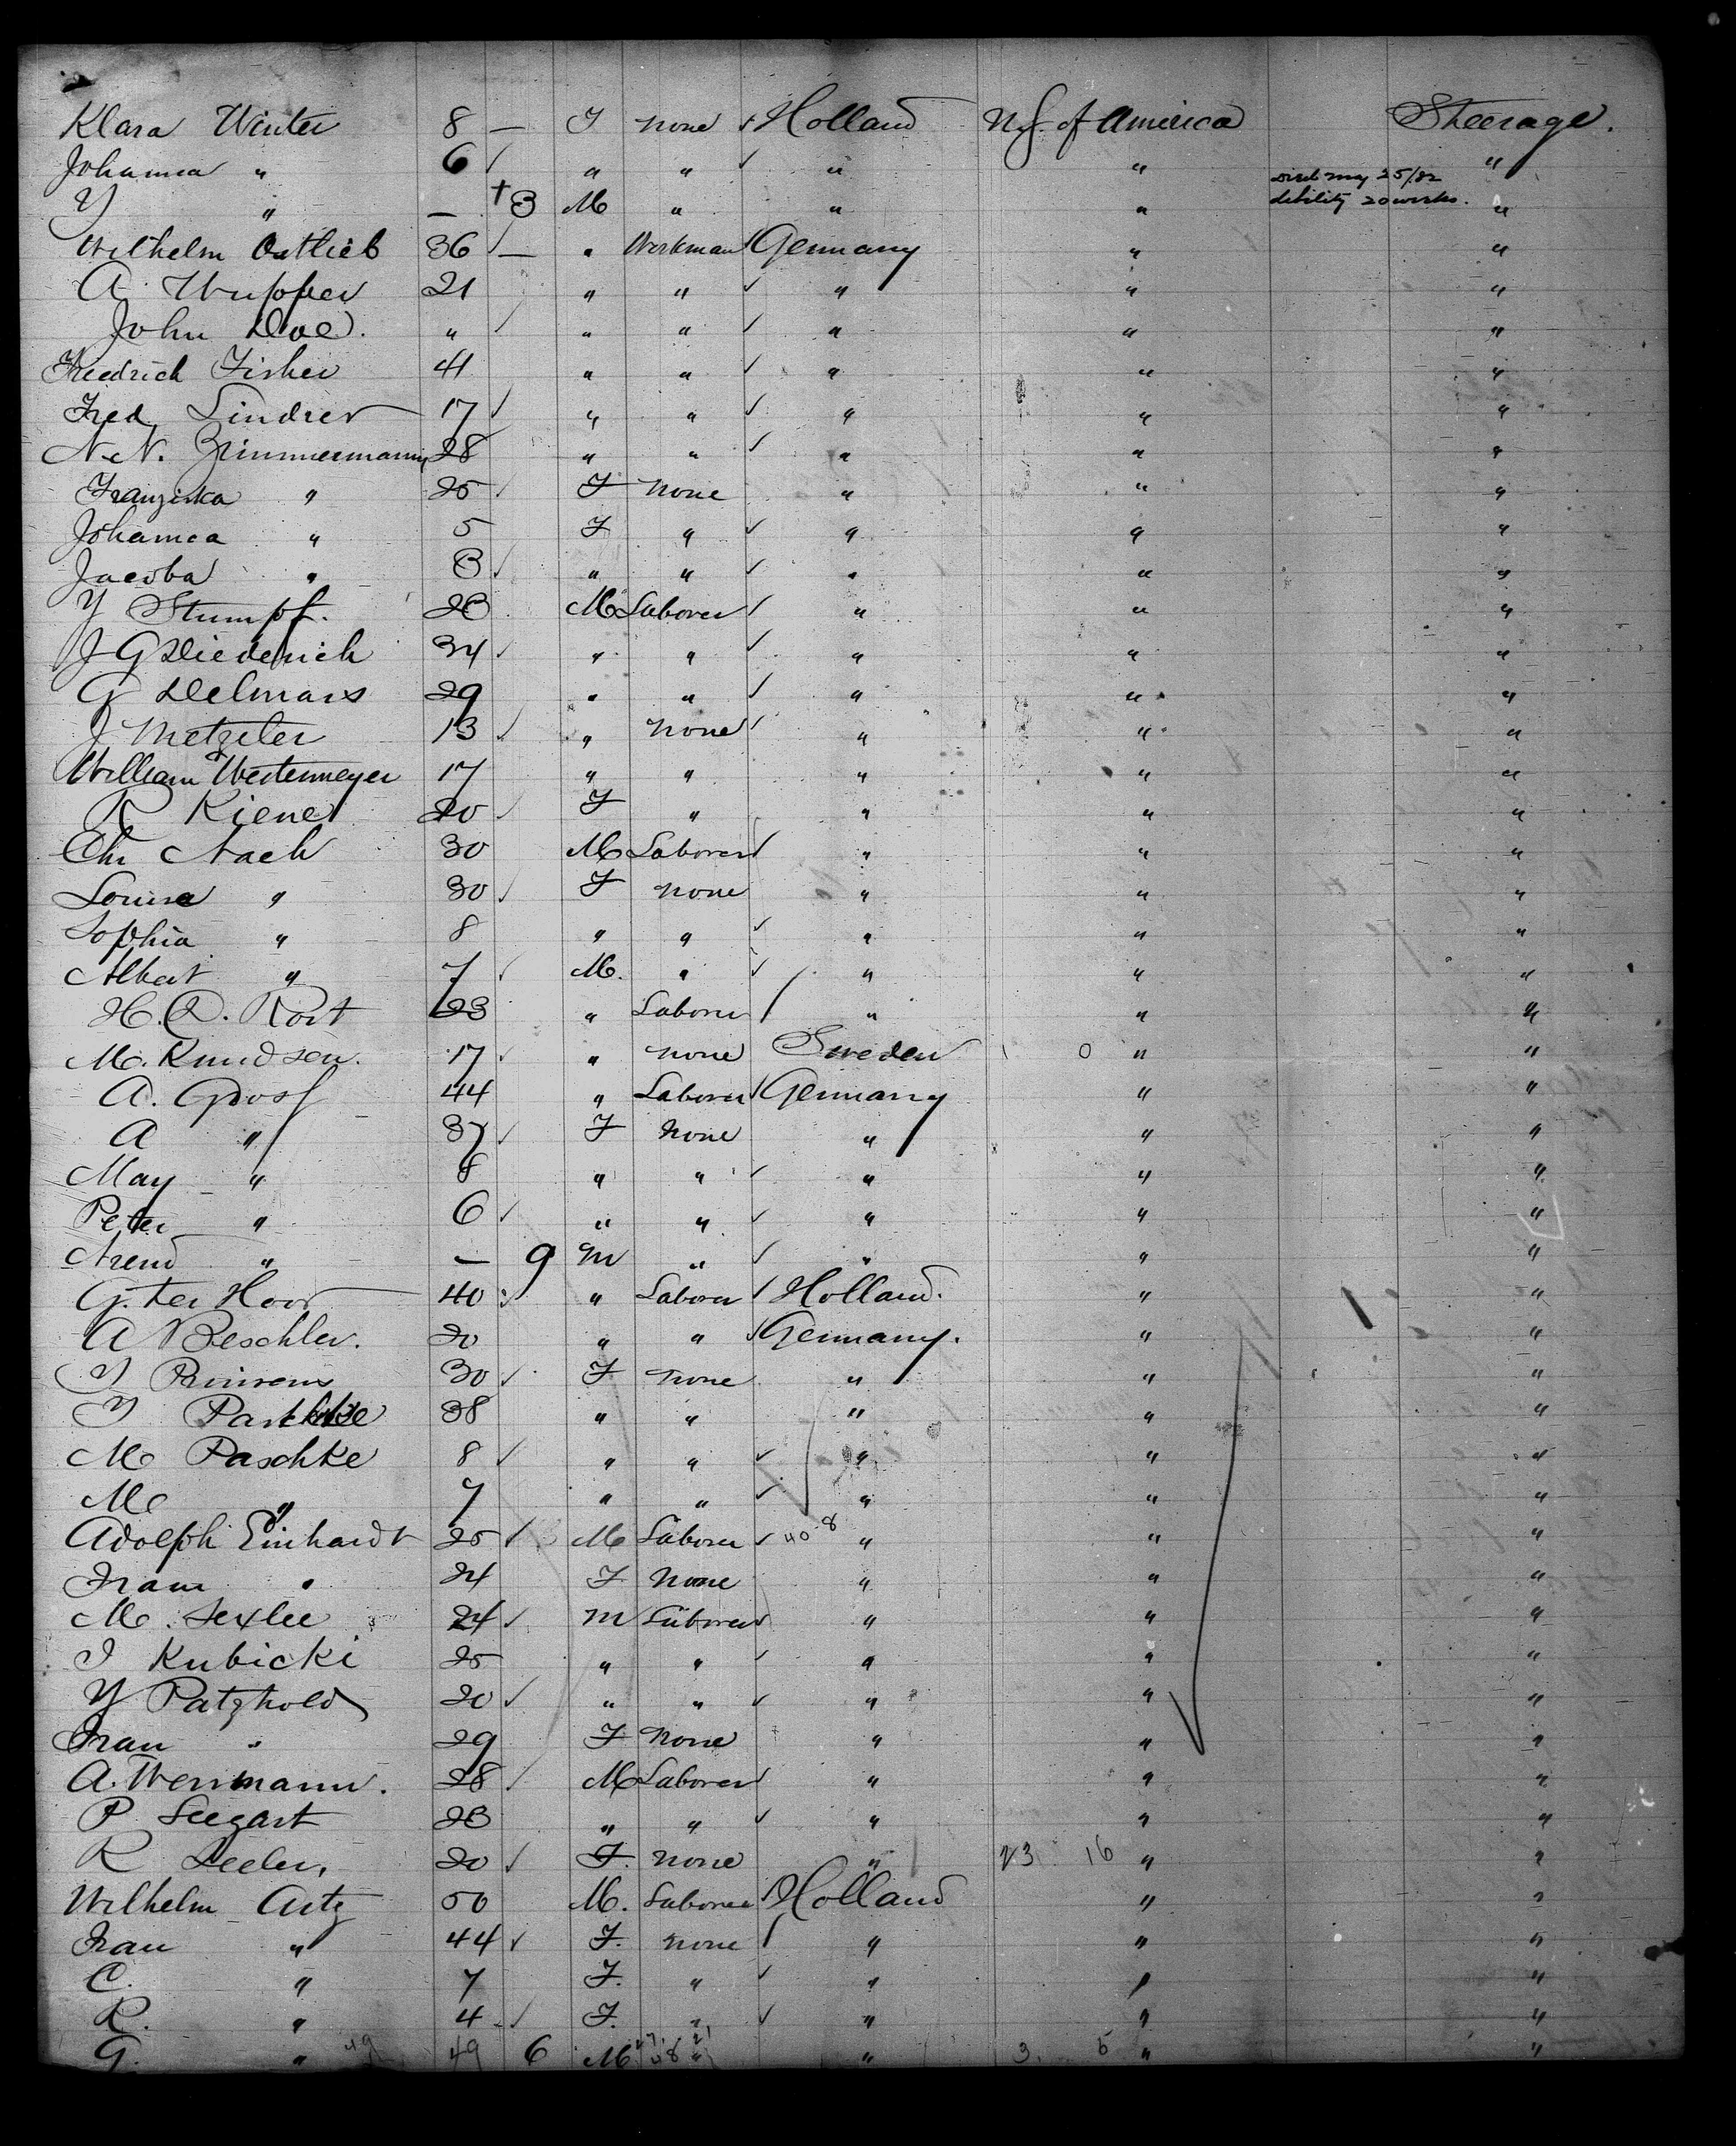 Klara Winter 8 — F none ✓ Holland U.S. of America Steerage.
Johanna " 6 ✓ " " ✓ " " "
Y " — † 3 M " " " Died may 25/82 debility 20 weeks. "
Wilhelm Ostlieb 36 ✓ — " Workman ✓ Germany " "
A. Wupper 21 " " ✓ " " "
John Doe. " ✓ " " ✓ " " "
Friedrich Fisher 41 " " ✓ " " "
Fred Lindner 17 ✓ " " ✓ " " "
N. N. Zimmermann 28 " " ✓ " " "
Franziska " 25 ✓ F none " " "
Johanna " 5 F " ✓ " " "
Jacoba " 3 ✓ " " ✓ " " "
Y Stumpf. 23 M Laborer ✓ " " "
J G Diederich 34 ✓ " " ✓ " " "
G Delmars 29 " " ✓ " " "
J Metzeler 13 ✓ " none ✓ " " "
William Westenmeyer 17 " " " " "
R Kiene 20 ✓ F " " " "
Chr Nach 30 M Laborer ✓ " " "
Louise " 30 ✓ F none " " "
Sophia " 8 " " ✓ " " "
Albert " 7 ✓ M. " ✓ " " "
H. D. Rost 23 " Laborer / " " "
M. Knudsen. 17 ✓ " none Sweden 0 " "
A. Gross 44 " Laborer ✓ Germany " "
A " 37 ✓ F none " " "
May " 8 " " ✓ " " "
Peter " 6 ✓ " " ✓ " " "
Arend " — 9 M " ✓ " " "
G. ter Hoor 40 ✓ " Laborer ✓ Holland. " "
A Beschler. 20 " " ✓ Germany. " "
30 ✓ F none " " "
38 " " " " "
M Paschke 8 ✓ " " ✓ " " "
M " 7 " " ✓ " " "
Adolph Einhardt 25 ✓ M Laborer ✓ 40-8 " " "
Frau " 24 F none " " "
M. Sexlee 24 ✓ M Laborer ✓ " " "
J Kubicki 25 " " ✓ " " "
Y Patzhold 20 ✓ " " ✓ " " "
Frau " 29 F none " " "
A. Wermann. 28 ✓ M Laborer ✓ " " "
P. Seegart 23 " " ✓ " " "
R Seeler, 20 ✓ F. none " 23 16 " "
Wilhelm Artz 50 M. Laborer ✓ Holland " "
Frau " 44 ✓ F. none / " " "
C. " 7 F. " ✓ " " "
R. " 4 ✓ F. " ✓ " " "
G. " 49 49 6 M " " 3. 5 " "